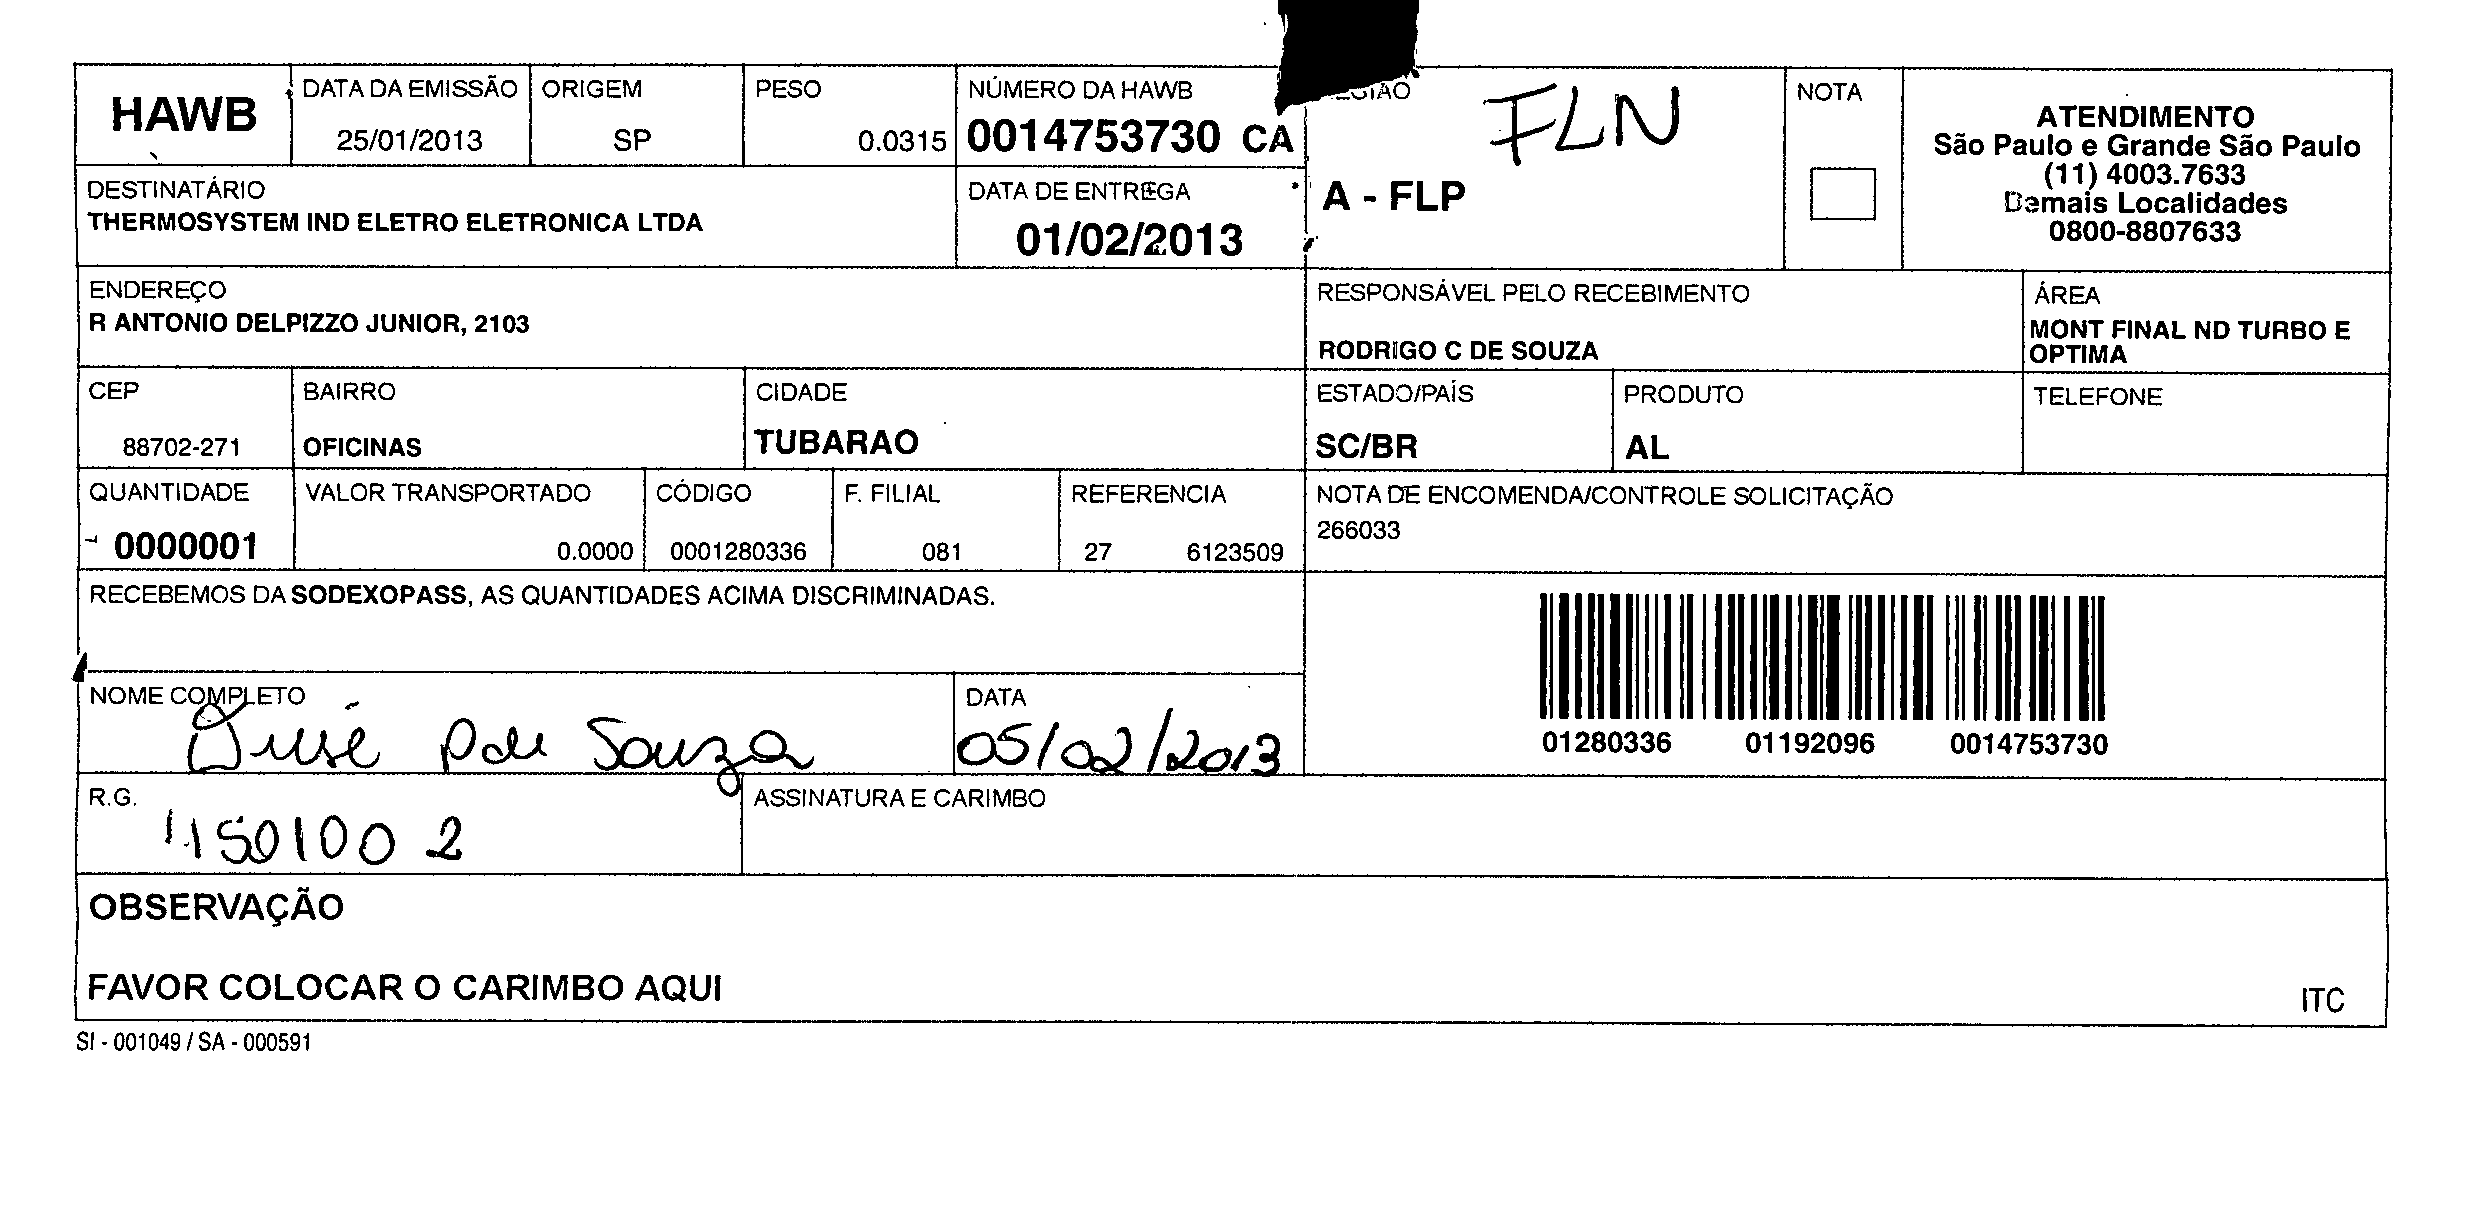 HAWB
DATA DA EMISSÃO
25/01/2013
ORIGEM
SP
PESO
0.0315
NÚMERO DA HAWB
0014753730 CA
FLN
A - FLP
NOTA
ATENDIMENTO
São Paulo e Grande São Paulo
(11) 4003.7633
Demais Localidades
0800-8807633
DESTINATÁRIO
THERMOSYSTEM IND ELETRO ELETRONICA LTDA
DATA DE ENTREGA
01/02/2013
ENDEREÇO
R ANTONIO DELPIZZO JUNIOR, 2103
RESPONSÁVEL PELO RECEBIMENTO
RODRIGO C DE SOUZA
ÁREA
MONT FINAL ND TURBO E
OPTIMA
CEP
88702-271
BAIRRO
OFICINAS
CIDADE
TUBARAO
ESTADO/PAÍS
SC/BR
PRODUTO
AL
TELEFONE
QUANTIDADE
0000001
VALOR TRANSPORTADO
0.0000
CÓDIGO
0001280336
F. FILIAL
081
REFERENCIA
27 6123509
NOTA DE ENCOMENDA/CONTROLE SOLICITAÇÃO
266033
RECEBEMOS DA SODEXOPASS, AS QUANTIDADES ACIMA DISCRIMINADAS.
01280336 01192096 0014753730
NOME COMPLETO
Souza
DATA
05/02/2013
R.G.
ASSINATURA E CARIMBO
OBSERVAÇÃO
FAVOR COLOCAR O CARIMBO AQUI
ITC
SI - 001049 / SA - 000591